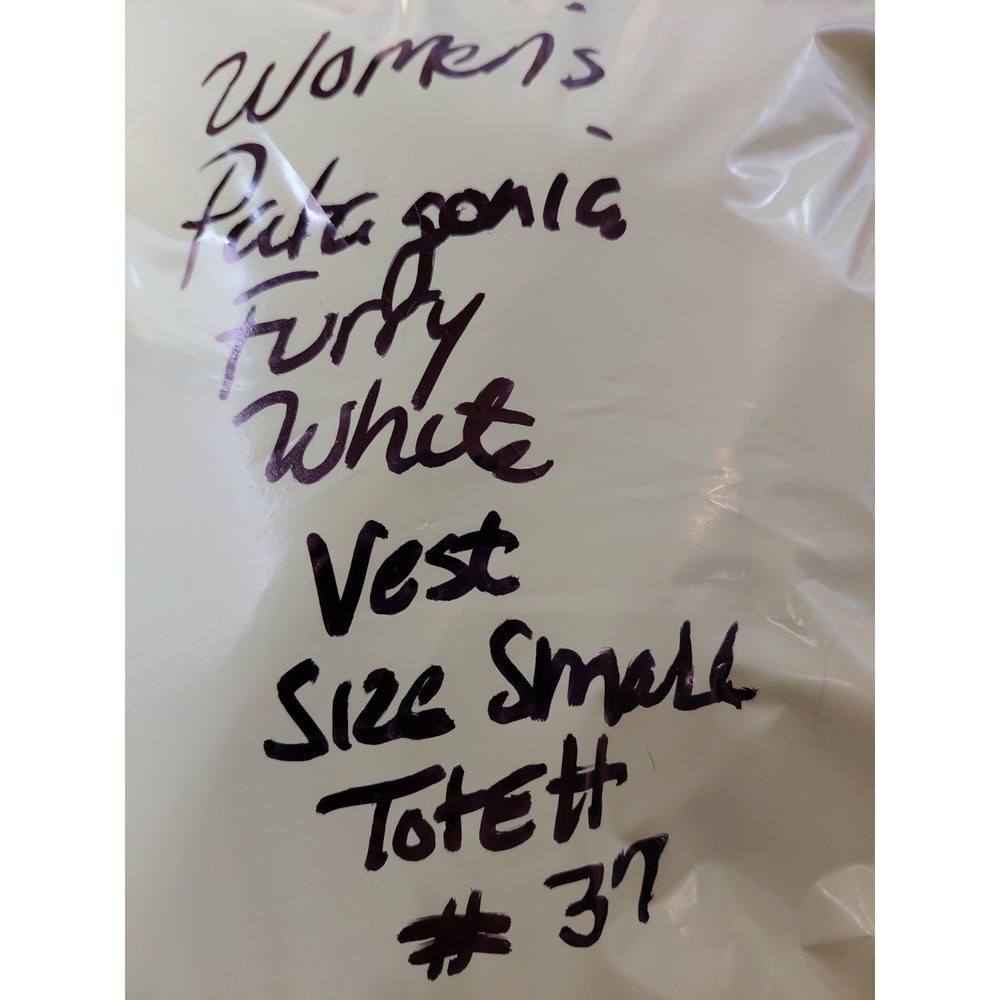 Women's
Patagonia
Furry
White
Vest
Size Small
TotE #
# 37